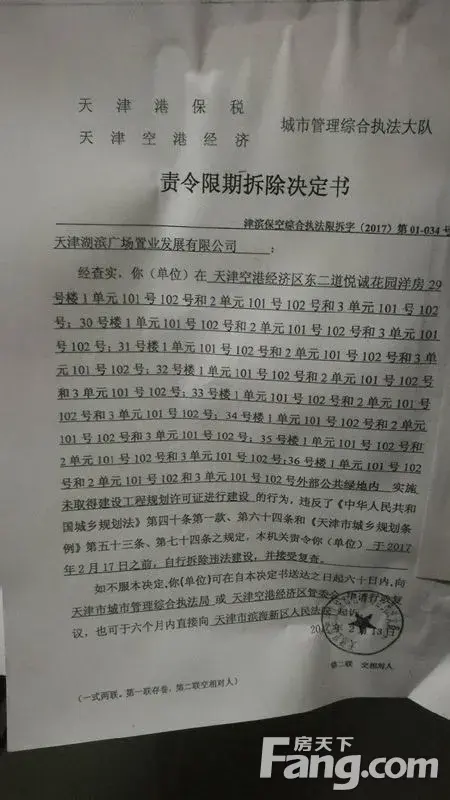 天津港保税
天津空港经济
城市管理综合执法大队
责令限期拆除决定书
津滨保空综合执法限拆字〔2017〕第01-034号
天津湖滨广场置业发展有限公司：
经查实，你（单位）在 天津空港经济区东二道悦诚花园洋房29
号楼1单元101号102号和2单元101号102号和3单元101号102
号；30号楼1单元101号102号和2单元101号102号和3单元101
号102号；31号楼1单元101号102号和2单元101号102号和3单
元101号102号；32号楼1单元101号102号和2单元101号102号
和3单元101号102号；33号楼1单元101号102号和2单元101号
102号和3单元101号102号；34号楼1单元101号102号和2单元
101号102号和3单元101号102号；35号楼1单元101号102号和
2单元101号102号和3单元101号102号；36号楼1单元101号102
号和2单元101号102号和3单元101号102号外部公共绿地内 实施
未取得建设工程规划许可证进行建设 的行为，违反了《中华人民共和
国城乡规划法》第四十条第一款、第六十四条和《天津市城乡规划条
例》第五十三条、第七十四条之规定，本机关责令你（单位）于2017
年2月17日之前，自行拆除违法建设，并接受复查。
如不服本决定，你(单位)可在自本决定书送达之日起六十日内，向
天津市城市管理综合执法局 或 天津空港经济区管委会 申请行政复
议，也可于六个月内直接向 天津市滨海新区人民法院 起诉。
2017年2月13日
第二联 交相对人
（一式两联，第一联存卷，第二联交相对人）
房天下
Fang.com